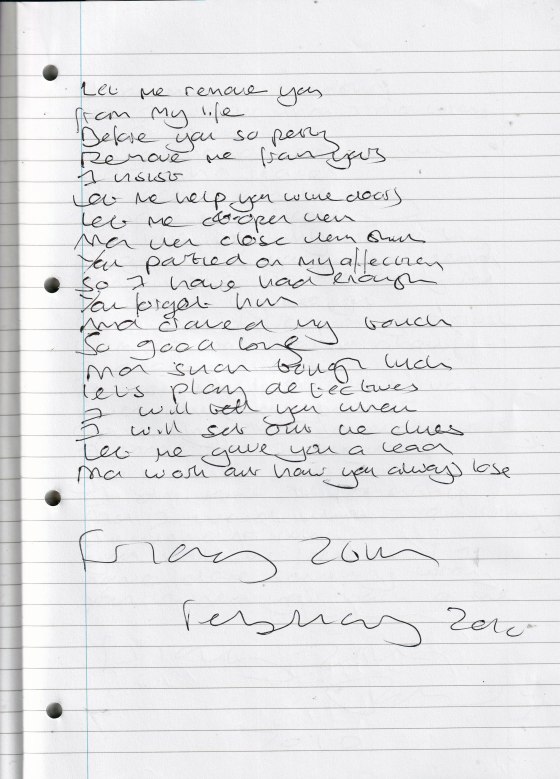 Let me remove you
from my life
Before you so
Remove me from yours
I insist
Let me help you with doors
Let me open them
And then close them
You on my affection
So I have had enough
You forget him
And craved my touch
So good
And such tough luck
Let's play detectives
I will tell you when
I will set out the clues
Let me gave you a lead
And work out how you always lose
Friday 20th
February